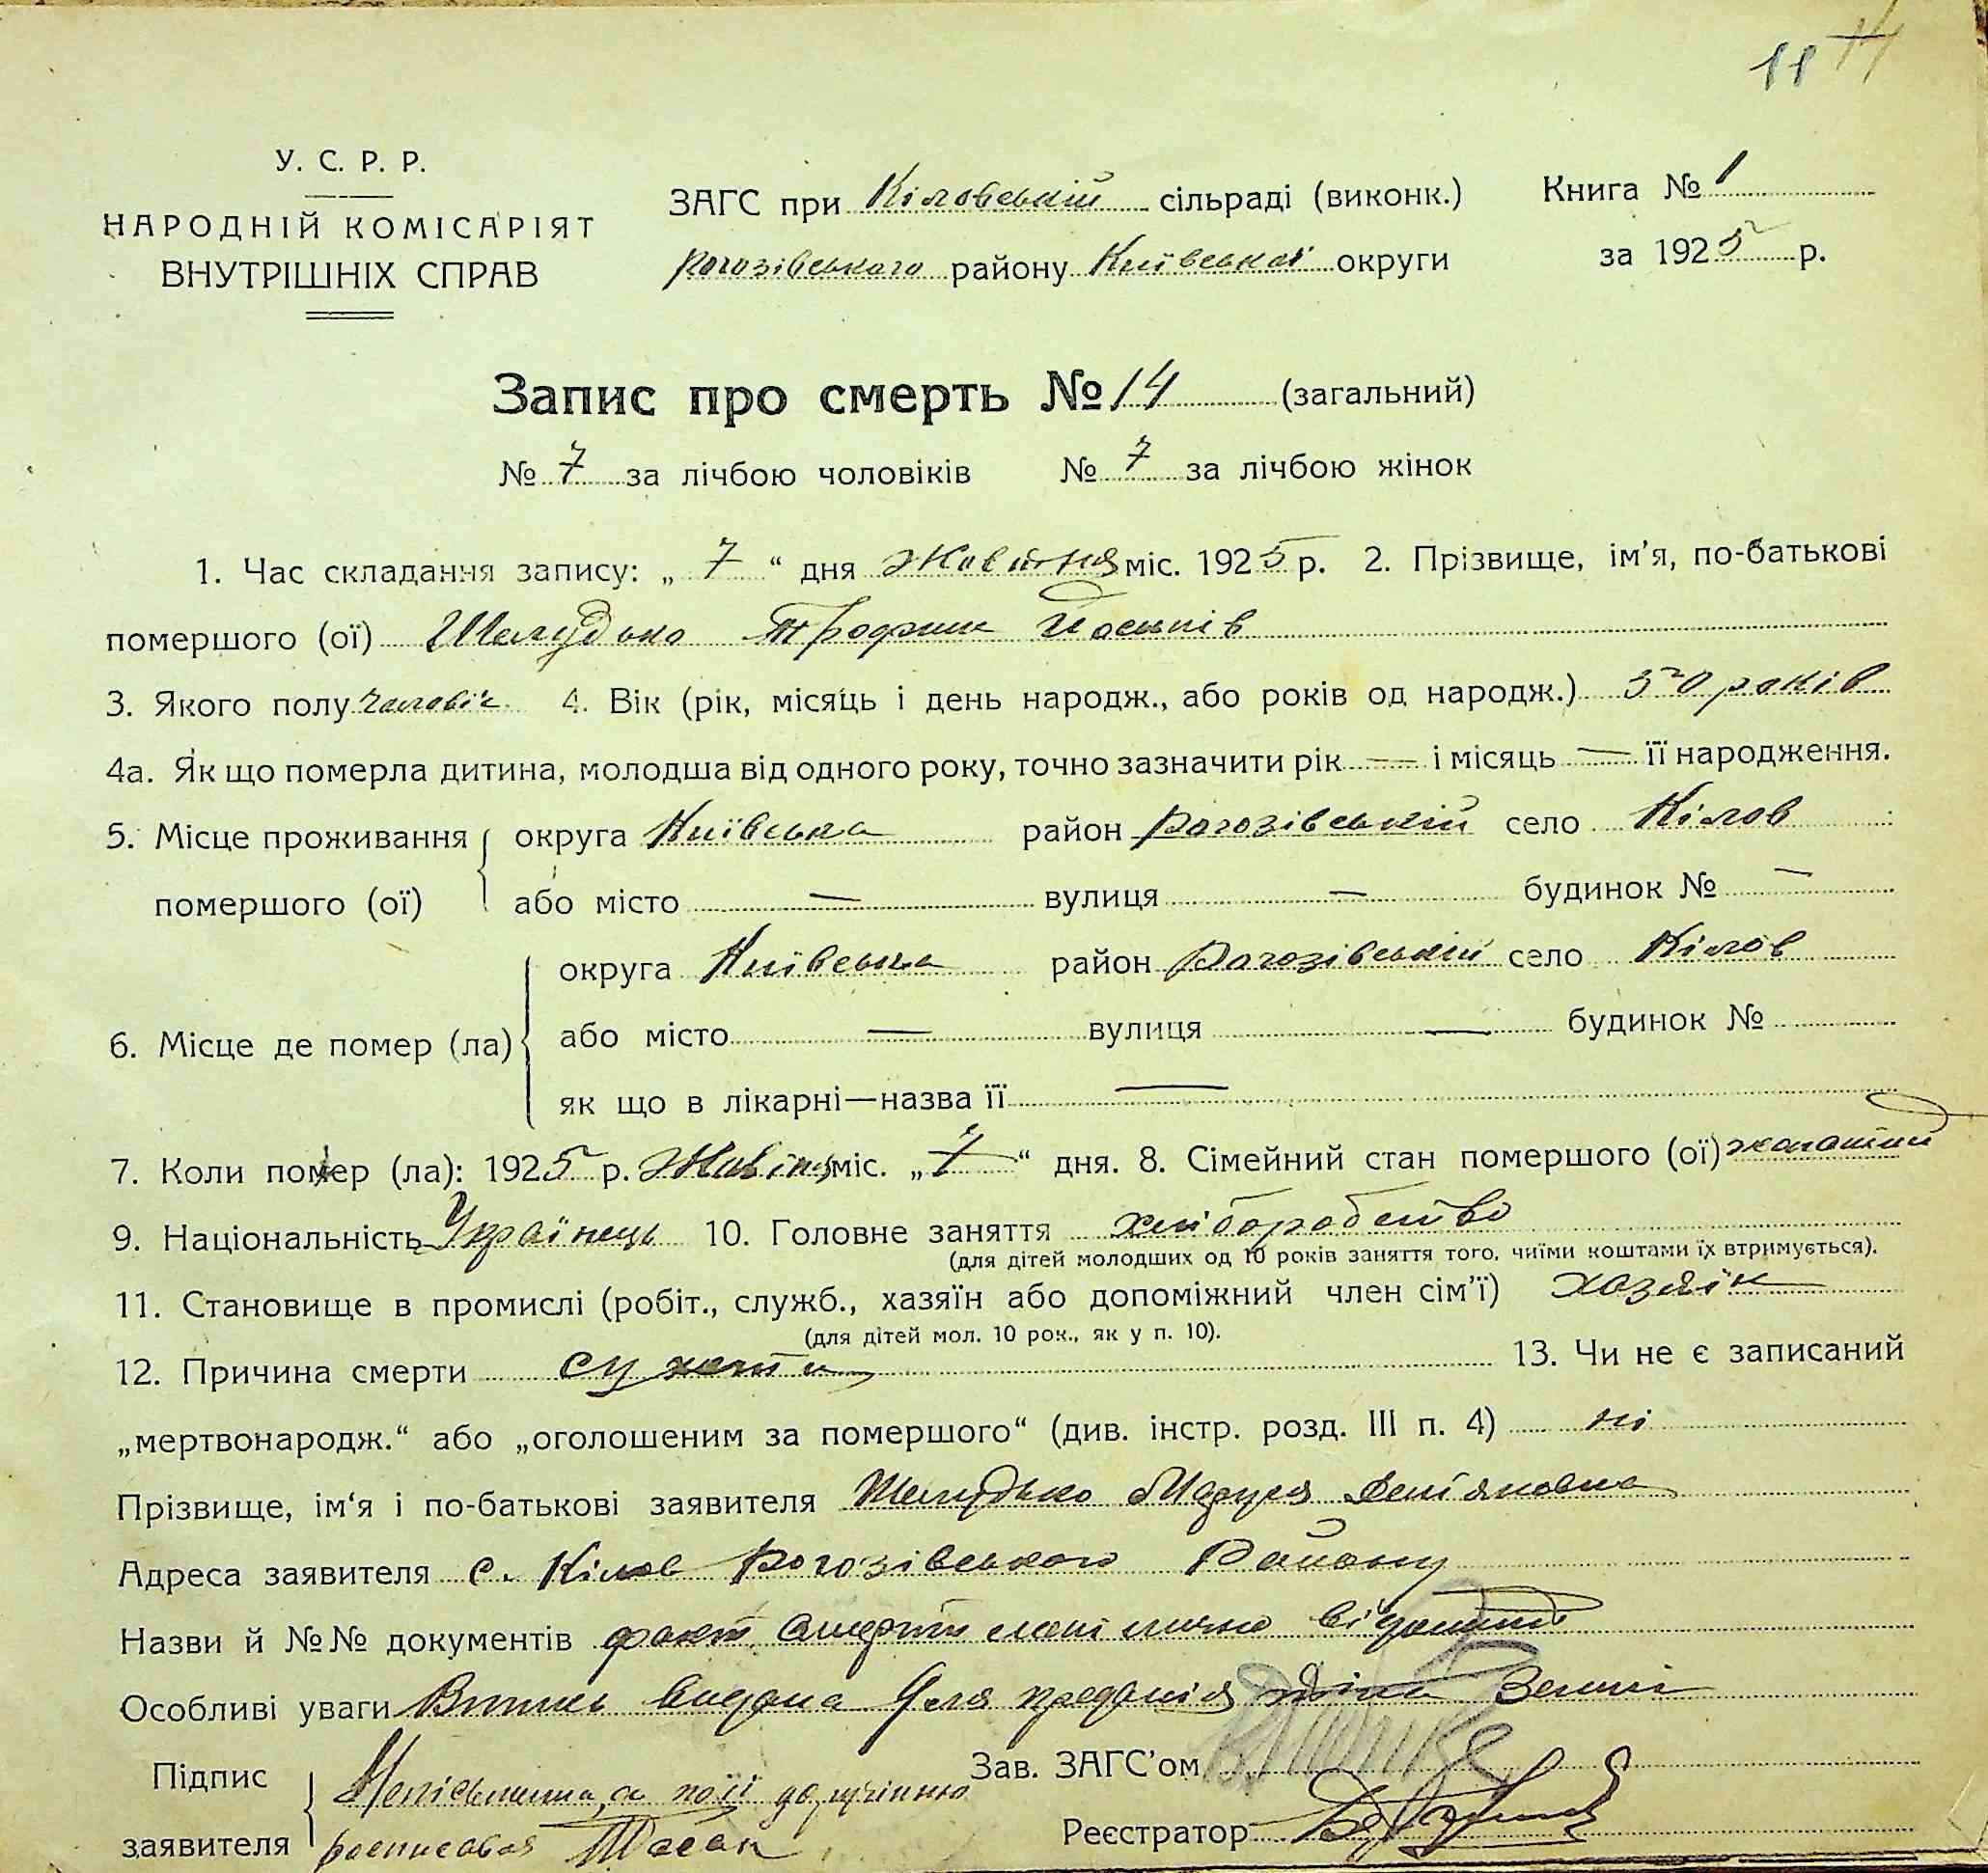 11 14
У. С. Р. Р.
НАРОДНІЙ КОМІСАРІЯТ
ВНУТРІШНІХ СПРАВ
ЗАГС при Кіловській сільраді (виконк.) Книга № 1
Рогозівського району Київської округи за 1925 р.
Запис про смерть № 14 (загальний)
№ 7 за лічбою чоловіків № 7 за лічбою жінок
1. Час складання запису: „ 7 “ дня Жовтня міс. 1925 р. 2. Прізвище, ім’я, по-батькові
помершого (ої) Шелудько Трофим Йосипів
3. Якого полу чоловік 4. Вік (рік, місяць і день народж., або років од народж.) 50 років
4а. Як що померла дитина, молодша від одного року, точно зазначити рік — і місяць — її народження.
5. Місце проживання округа Київська район Рогозівській село Кілов
помершого (ої) або місто — вулиця — будинок № —
округа Київська район Рогозівській село Кілов
6. Місце де помер (ла) або місто — вулиця — будинок №
як що в лікарні—назва її —
7. Коли помер (ла): 1925 р. міс. „ 7 “ дня. 8. Сімейний стан помершого (ої) жонатий
9. Національність Українець 10. Головне заняття хліборобство
(для дітей молодших од 10 років заняття того, чиїми коштами їх втримується).
11. Становище в промислі (робіт., служб., хазяїн або допоміжний член сім’ї) хозяїн
(для дітей мол. 10 рок., як у п. 10).
12. Причина смерти сухоти 13. Чи не є записаний
„мертвонародж.“ або „оголошеним за помершого“ (див. інстр. розд. III п. 4) ні
Прізвище, ім‘я і по-батькові заявителя Шелудько
Адреса заявителя с. Кілов Рогозівського Району
Назви й №№ документів факт смерти
Особливі уваги видана для
Підпис Зав. ЗАГС’ом
заявителя Реєстратор